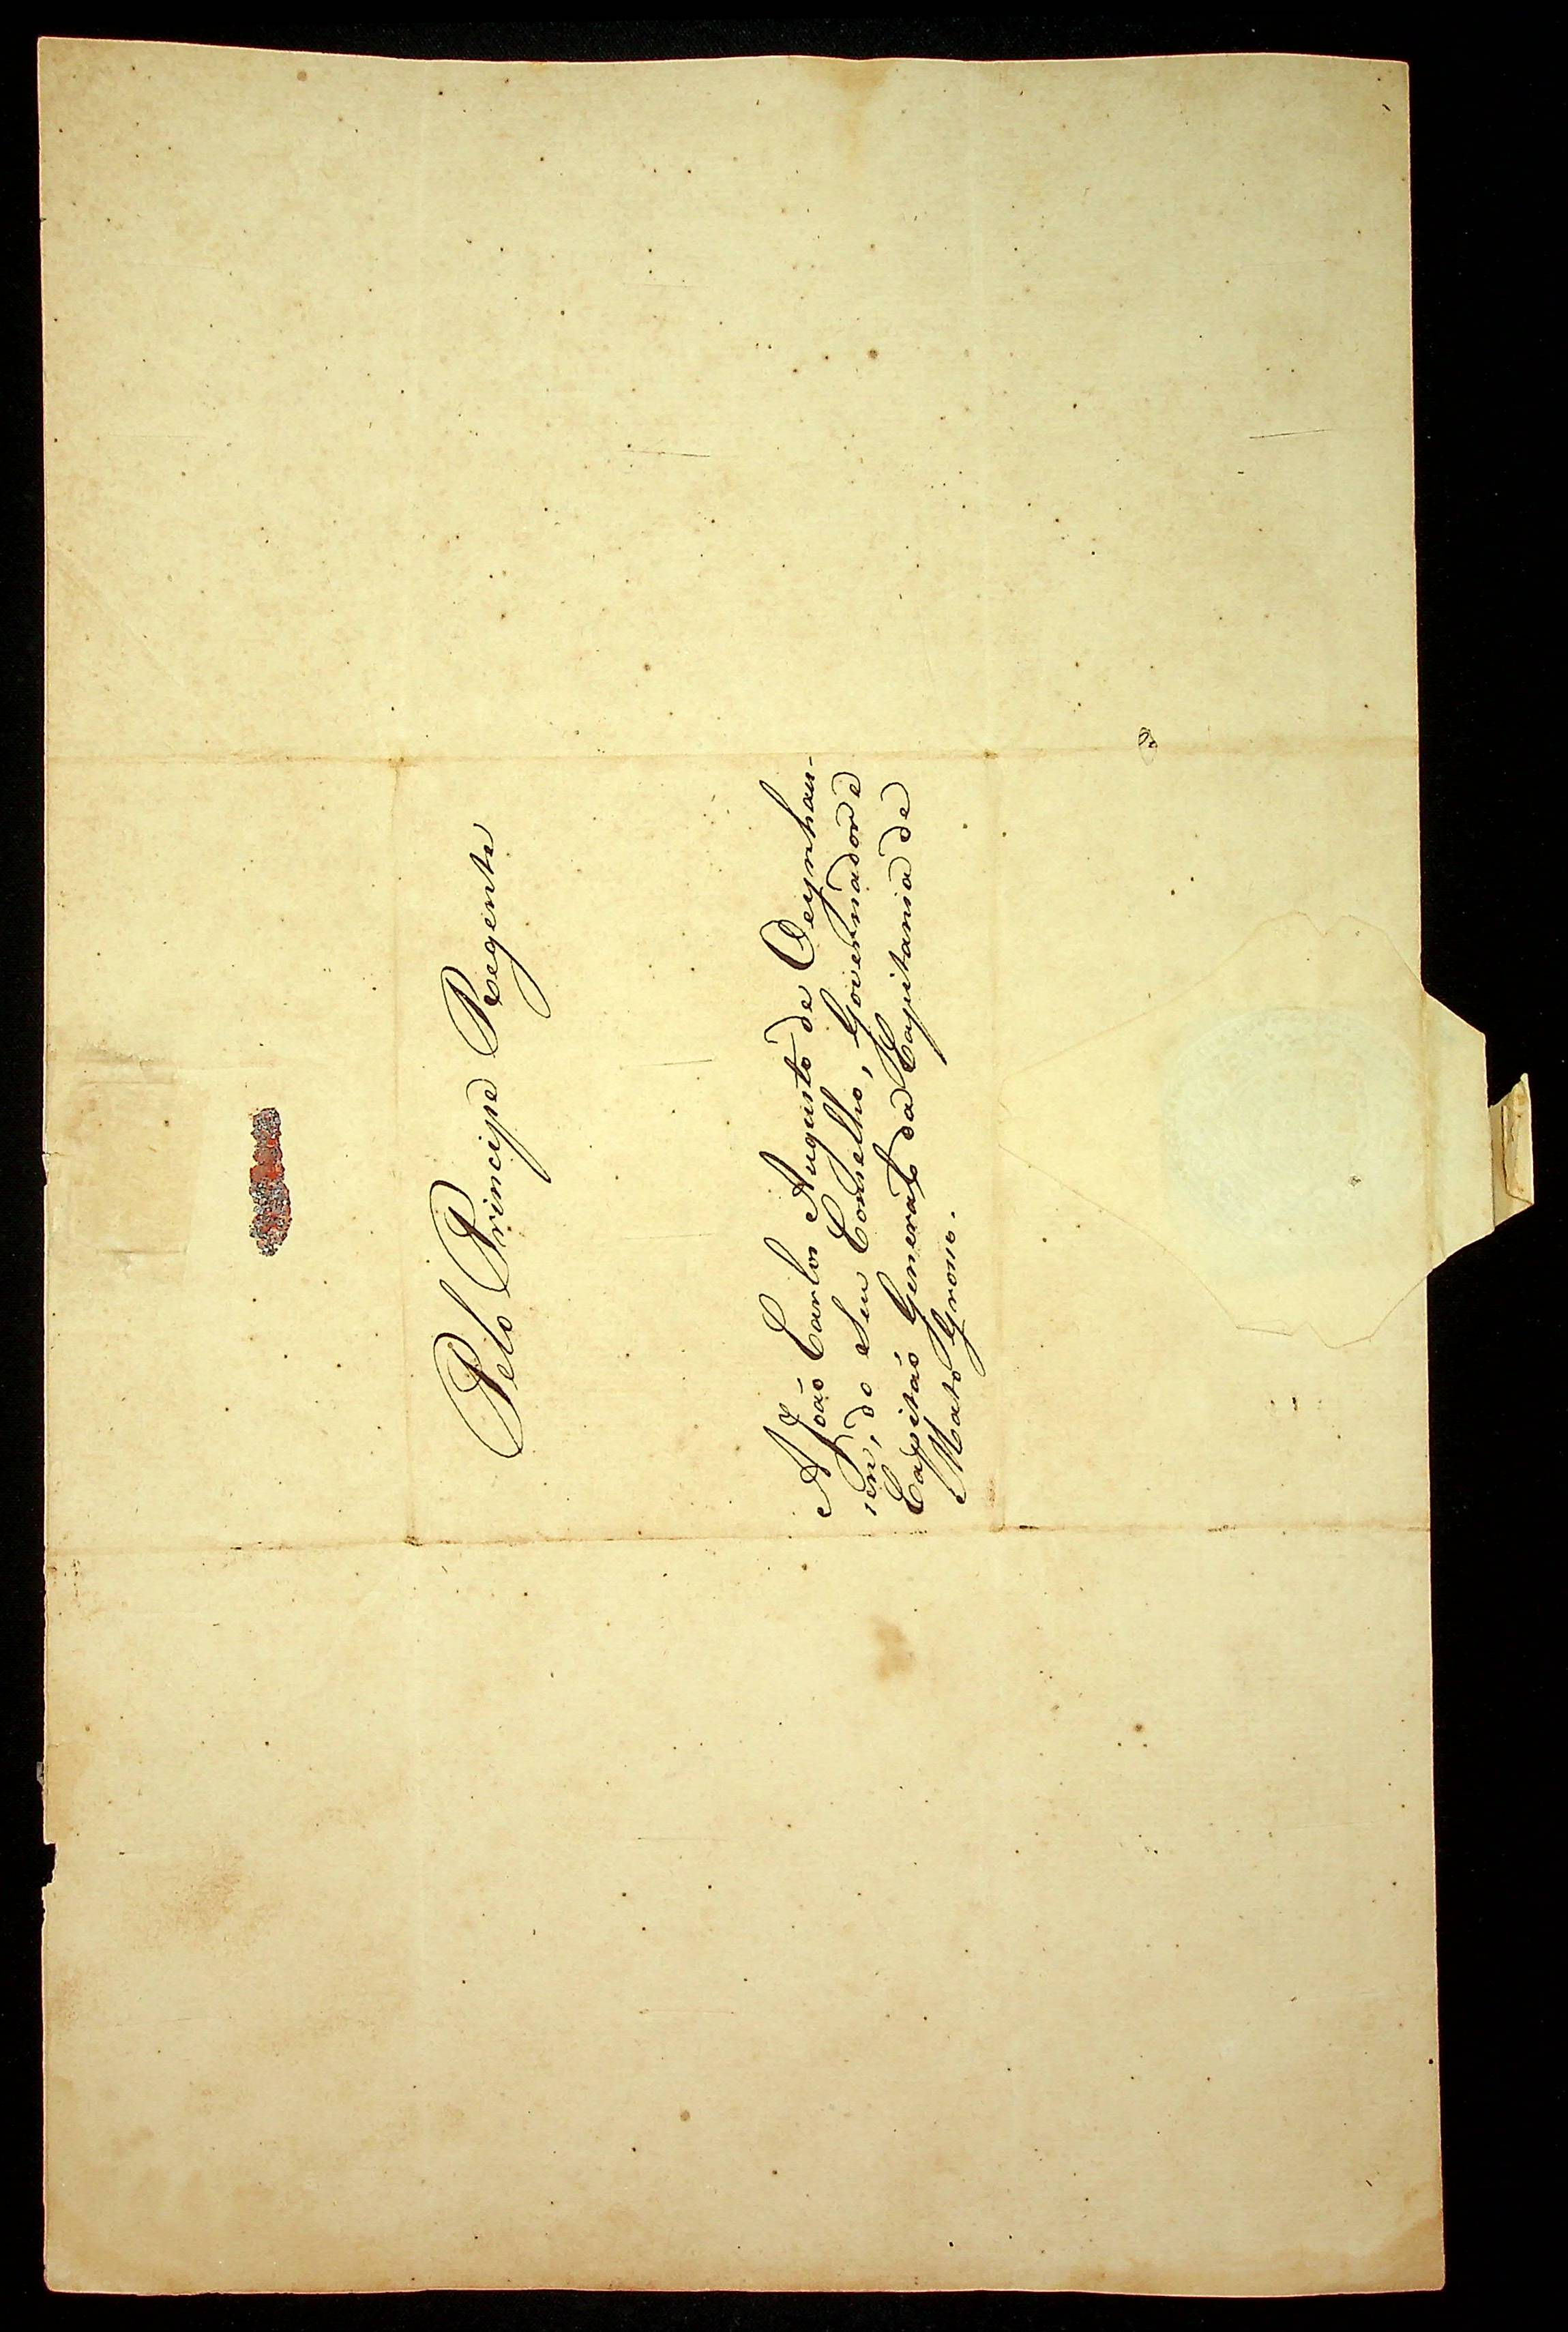 Pelo Principe Regente
A João Carlos Augusto de Oeynhau-
sen, do Seu Conselho, Governador e
Capitaõ General da Capitania de
Mato Grosso.